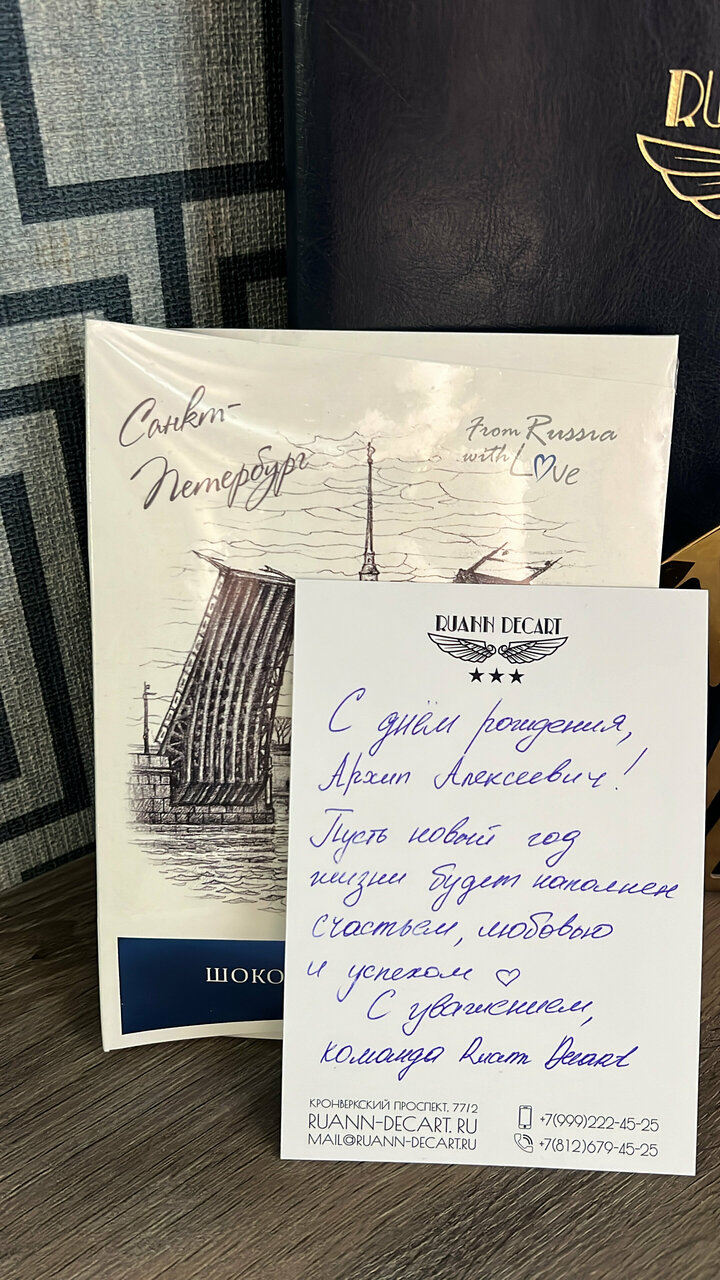 RU
Санкт-
Петербург
From Russia
with Love
ШОКО
RUANN DECART
С днём рождения,
Архип Алексеевич!
Пусть новый год
жизни будет наполнен
счастьем, любовью
и успехом ♡
С уважением,
команда Ruann Decart
КРОНВЕРКСКИЙ ПРОСПЕКТ, 77/2
RUANN-DECART.RU
MAIL@RUANN-DECART.RU
+7(999)222-45-25
+7(812)679-45-25